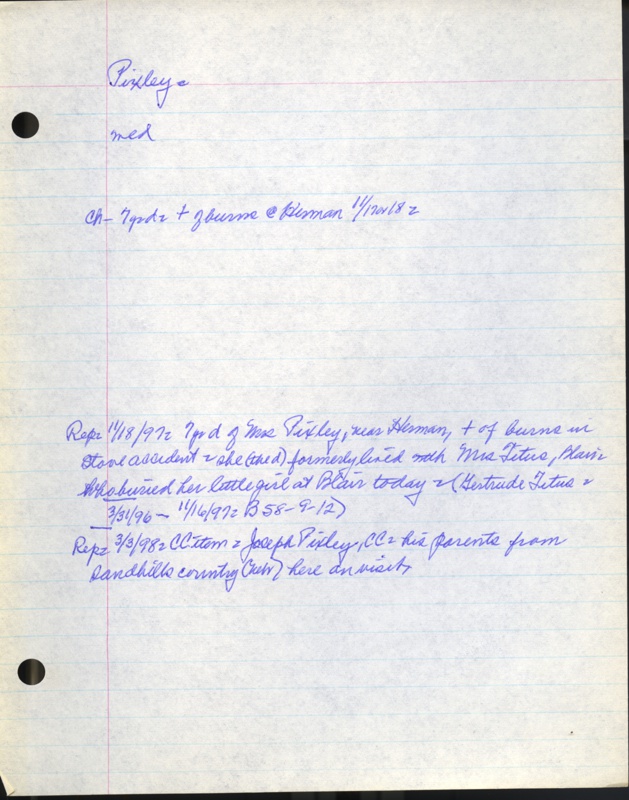 Pixley =
med
Ch- 7yrd = + of burns @ Herman 11/Nov18 =
Rep= 11/18/97= 7yr d of Mrs Pixley, near Herman, + of burns in
stove accident = she (the d) formerly lived with Mrs Tetus, Blair=
Who buried her little girl at Blair today = (Gertrude Tetus =
3/31/96 - 11/16/97= B58-9-12)
Rep= 3/3/98= CC item = Joseph Pixley, CC = his parents from
Sandhills country (Neb) here on visit,